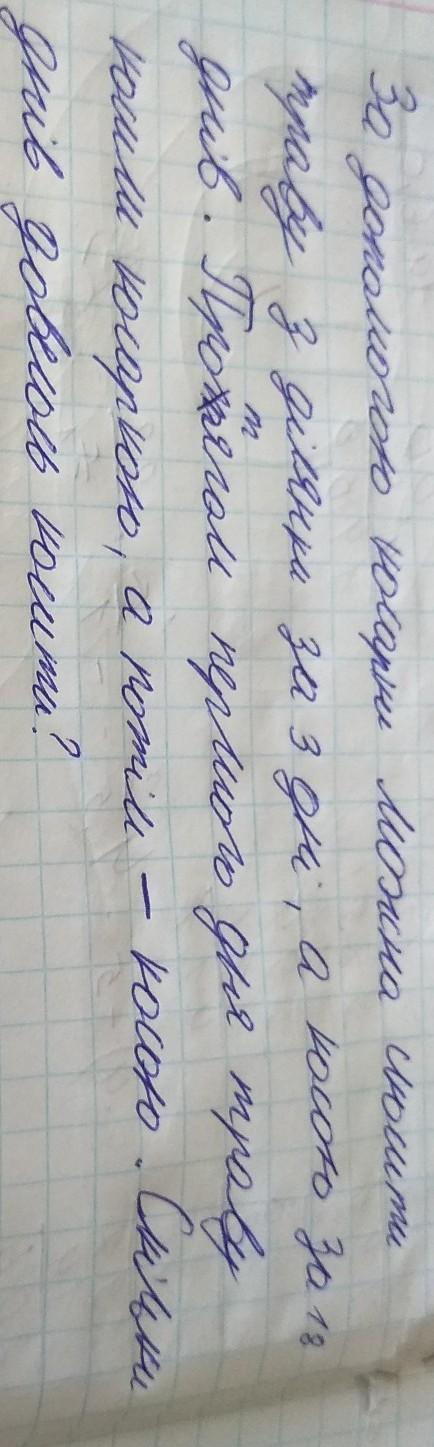 За допомогою косарки можна скосити
траву з ділянки за 3 дні, а косою за 12
днів. Протягом першого дня траву
косили косаркою, а потім – косою. Скільки
днів довелось косити?